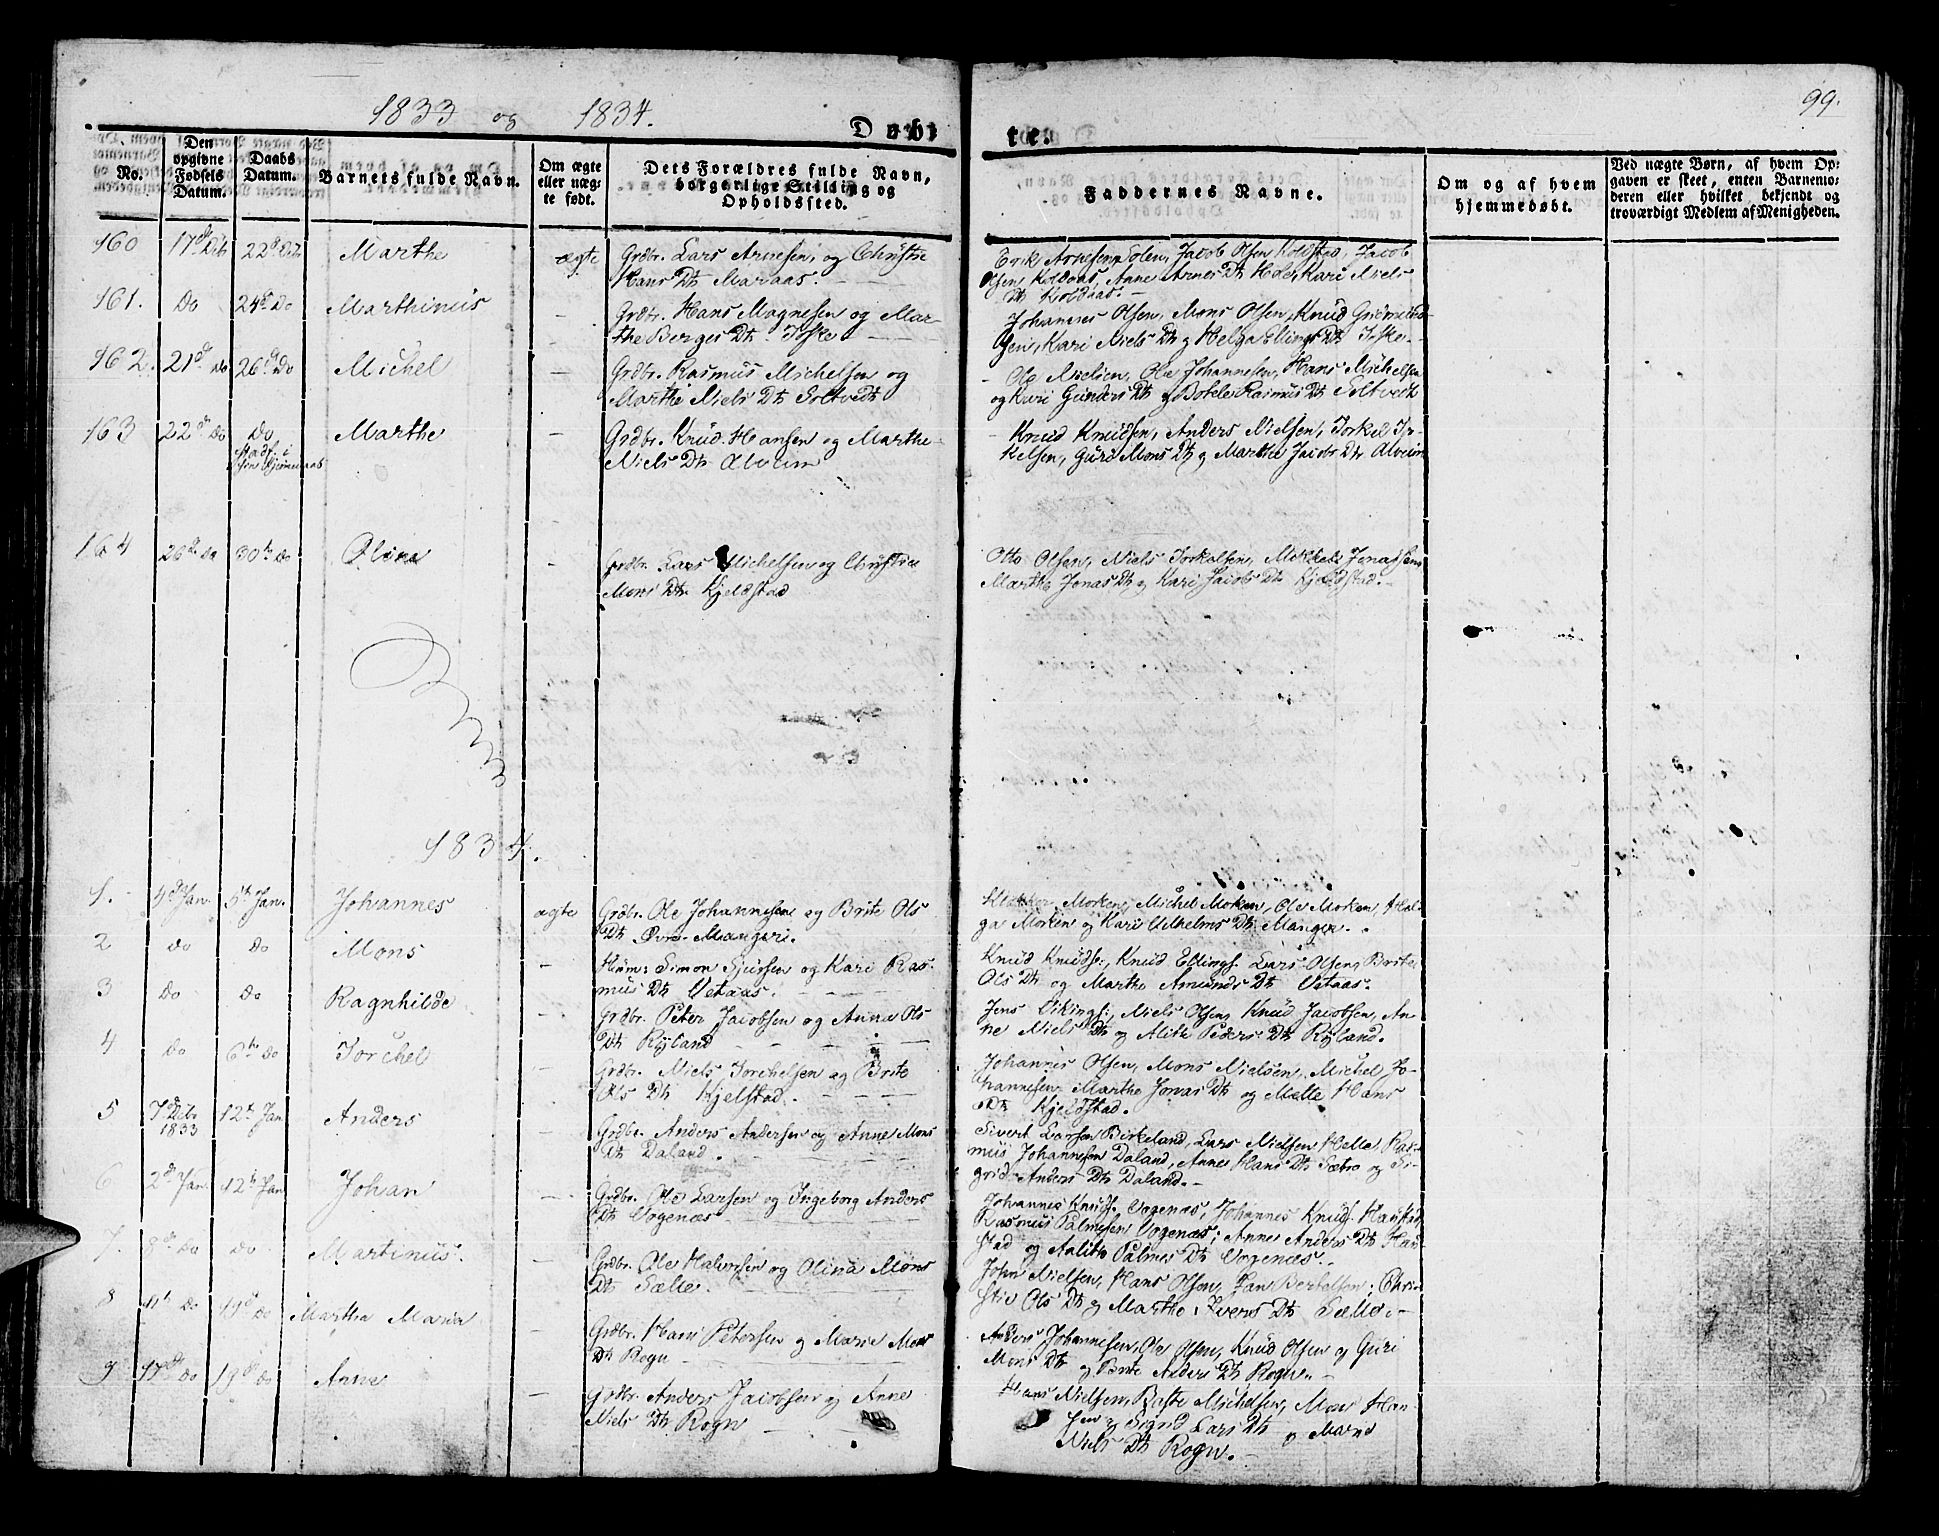 1833 og 1834.
Døbte.
99.
No.
Den opgivne Fødsels Datum.
Daabs Datum.
Barnets fulde Navn.
Om ægte eller uægte født.
Dets Forældres fulde Navn, borgerlige Stilding og Opholdssted.
Faddernes Navne.
Om og af hvem hjemmedøbt.
Ved uægte Børn, af hvem Opgaven er skeet, enten Barnemoderen eller hvilket bekjendt og troværdigt Medlem af Menigheden.
160 17de Dcb 22de Dcb Marthe ægte Grdbr. Lars Arnesen, og Christie
Hans Dtr Maraas.
Erik Arnesen Solen, Jacob Olsen Koldstad, Jacob
Olsen Koldaas, Anne Arnes Dtr Hole, Kari Niels
Dtr Koldaas.
161. Do 24de Do Marthinus Grdbr. Hans Magnesen og Mar-
the Berges Dtr Iske
Johannes Olsen, Mons Olsen, Knud Gudmunds-
sen, Kari Niels Dtr og Helga Ellings Dtr Iske
162. 21de Do 26de Do Michel Grdbr. Rasmus Michelsen og
Marthe Niels Dtr Soltvedt
Ole Nielsen, Ole Johannesen, Hans Michelsen
og Kari Gunders Dtr og Botele Rasmus Dtr Soltvedt
163 22de Do Do
stadf. i
Marthe Grdbr. Knud Hansen og Marthe
Niels Dtr Alveim
Knud Knudsen, Anders Nielsen, Torkel Tor-
kelsen, Guri Mons Dtr og Marthe Jacobs Dtr Alveim
164 26de Do 30te Do Olina Grdbr. Lars Michelsen og Christie
Mons Dtr Kjeldstad
Otto Olsen, Niels Torkelsen, Mikkel Jonassen
Marthe Jonas Dtr og Kari Jacobs Dtr Kjeldstad.
1834.
1. 4de Jan. 5te Jan. Johannes ægte Grdbr. Ole Johannesen og Brite Ols
Dtr Øvre Manger.
Morken, Michel Morken, Ole Morken, Hel-
ga Morken og Kari Vilhelms Dtr Manger.
2 Do Do Mons Huusm: Simon Sjursen og Kari Ras-
mus Dtr Vetaas.
Knud Knudsen, Knud Ellings. Lars Olsen, Brite
Ols Dtr og Marthe Amunds Dtr Vetaas.
3 Do Do Ragnhilde Grdbr. Peter Jacobsen og Anna Ols
Dtr Ryland
Jens Vikings: Niels Olsen, Knud Jacobsen, An-
ne Niels Dtr og Alith Peders Dtr Ryland.
4 Do 6te Do Torchel Grdbr. Niels Torchelsen og Brite
Ols Dtr Kjelstad.
Johannes Olsen, Mons Nielsen, Michel Jo-
hannesen, Marthe Jonas Dtr og Mætte Hans
Dtr Kjeldstad.
5 7de Dcbr 1833 12te Jan Anders Grdbr. Anders Andersen og Anne Mons
Dtr Daland.
Sivert Larsen Birkeland, Lars Nielsen Helle Ras-
mus Johannesen Daland, Anne Hans Dtr Sætre og Si-
grid Anders Dtr Daland.
6 2de Jan. 12te Jan Johan Grdbr. Ole Larsen og Ingeborg Anders
Dtr Vogenæs
Johannes Knuds. Vogenæs, Johannes Knuds. Hanstad
Rasmus Palmesen Vogenæs; Anne Anders Dtr Han-
stad og Aalith Palmes Dtr Vogenæs.
7. 8de Do Do Martinus. Grdbr. Ole Halvorsen og Olina Mons
Dtr Sælle.
John Nielsen, Hans Olsen, Jan Bertelsen; Chri-
stie Ols Dtr og Marthe Ivers Dtr Sælle.
8 11te Do 19de Do Martha Maria Grdbr. Hans Petersen og Marie Mons
Dtr Rogn
Anders Johannesen, Ole Olsen, Knud Olsen og Guri
Mons Dtr og Brite Anders Dtr Rogn.
9 17de Do 19de Do Anne Grdbr. Anders Jacobsen og Anne
Niels Dtr Rogn
Hans Nielsen, Baste Michelsen, Mons Han-
sen og Sigrid Lars Dtr og Marthe
Niels Dtr Rogn.